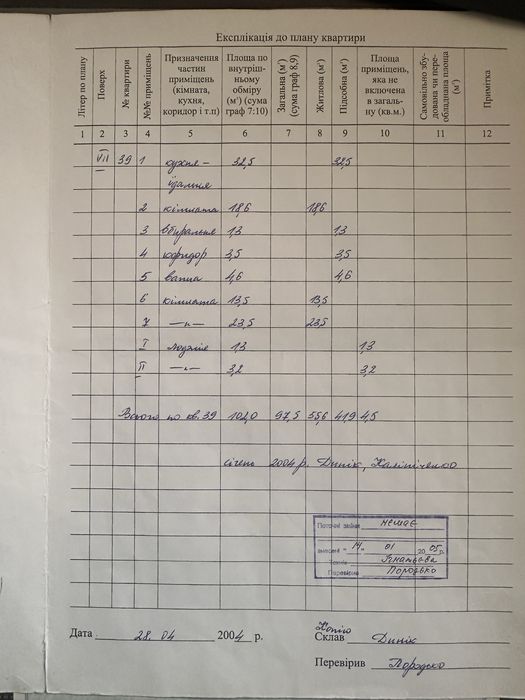 Експлікація до плану квартири
Літер по плану | Поверх | № квартири | №№ приміщень | Призначення частин приміщень (кімната, кухня, коридор і т.п) | Площа по внутрішньому обміру (м²) (сума граф 7:10) | Загальна (м²) (сума граф 8,9) | Житлова (м²) | Підсобна (м²) | Площа приміщень, яка не включена в загальну (кв.м.) | Самовільно збудована чи переобладнана площа (м²) | Примітка
1 2 3 4 5 6 7 8 9 10 11 12
VII 39 1 кухня – 32,5 32,5
їдальня
2 кімната 18,6 18,6
3 вбиральня 1,3 1,3
4 коридор 3,5 3,5
5 ванна 4,6 4,6
6 кімната 13,5 13,5
7 —„— 23,5 23,5
I лоджія 1,3 1,3
II —„— 3,2 3,2
Всього по кв. 39 102,0 97,5 55,6 41,9 4,5
січень 2004 р. Динік,
Поточні зміни немає
внесені "14" 01 2005 р.
Технік
Перевірив Породько
Дата 28.04 2004 р.
Копію
Склав Динік
Перевірив Породько